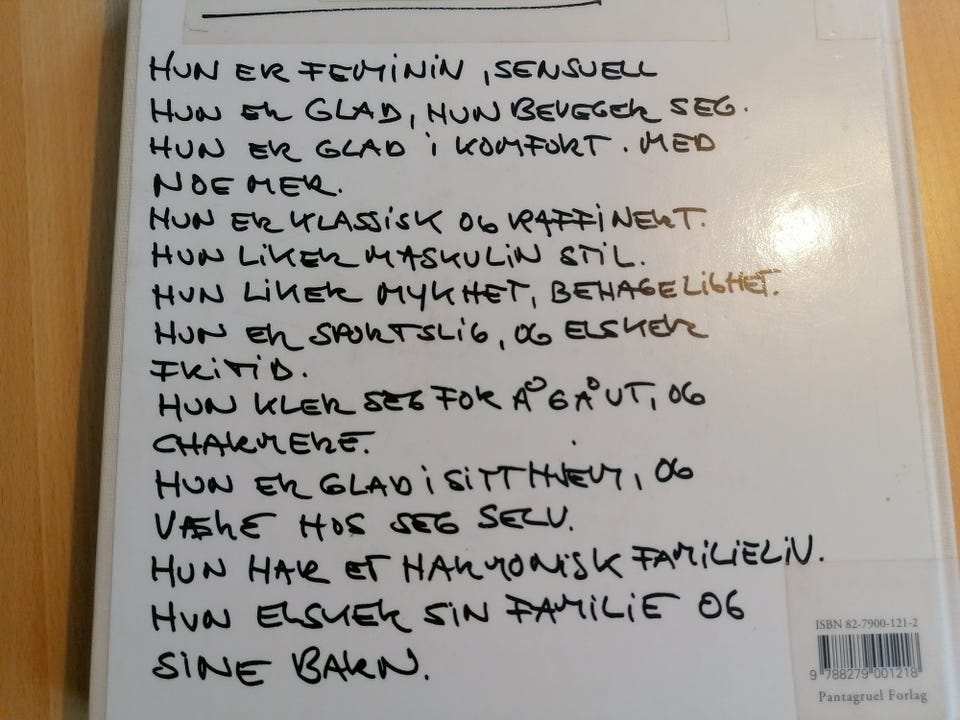 HUN ER FEMININ, SENSUELL
HUN ER GLAD, HUN BEVEGER SEG.
HUN ER GLAD I KOMFORT. MED
NOE MER.
HUN ER KLASSISK OG RAFFINERT.
HUN LIKER MASKULIN STIL.
HUN LIKER MYKHET, BEHAGELIGHET.
HUN ER SPORTSLIG, OG ELSKER
FRITID.
HUN KLER SEG FOR Å GÅ UT, OG
CHARMERE.
HUN ER GLAD I SITT HJEM, OG
VÆRE HOS SEG SELV.
HUN HAR ET HARMONISK FAMILIELIV.
HUN ELSKER SIN FAMILIE OG
SINE BARN.
ISBN 82-7900-121-2
9 788279 001218
Pantagruel Forlag